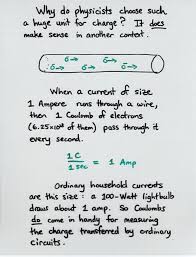 Why do physicists choose such
a huge unit for charge? It does
make sense in another context.
When a current of size
1 Ampere runs through a wire,
then 1 Coulomb of electrons
(6.25×10¹⁸ of them) pass through it
every second.
1C / 1 sec = 1 Amp
Ordinary household currents
are this size: a 100-Watt lightbulb
draws about 1 amp. So Coulombs
do come in handy for measuring
the charge transferred by ordinary
circuits.